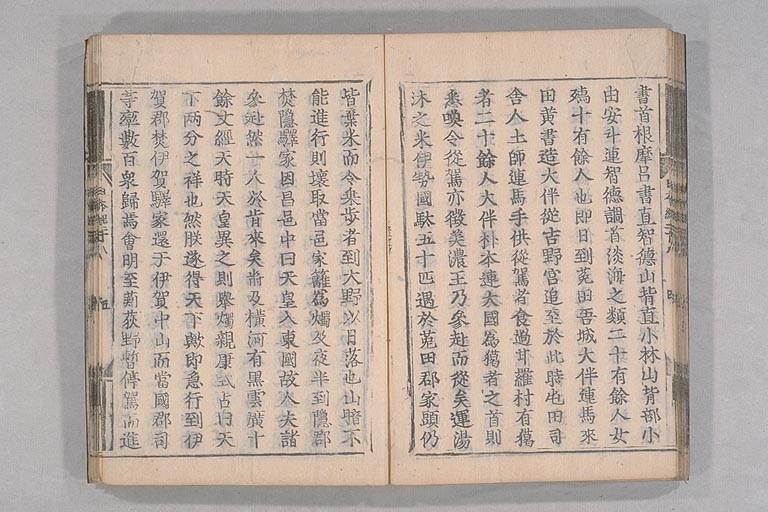 書首根摩呂書直智德山背直小林山背部小
田安斗連智德調首淡海之類二十有餘人女
孺十有餘人也即日到菟田吾城大伴連馬來
田黃書造大伴從吉野宮追至於此時也田司
舍人土師連馬手供從駕者食過甘羅村有獦
者二十餘人大伴朴本連大國爲獦者之首則
悉喚令從駕亦徵美濃王乃參赴而從矣運湯
沐之米伊勢國駄五十匹遇於菟田郡家頭仍
皆棄米而令乘步者到大野以日落也山暗不
能進行則壞取當邑家籬爲燭及夜半到隱郡
焚隱驛家因昌邑中曰天皇入東國故人夫諸
參赴然一人不肯來矣將及橫河有黑雲廣十
餘丈經天時天皇異之則擧燭親秉式占曰天
下兩分之祥也然朕遂得天下歟即急行到伊
賀郡焚伊賀驛家還于伊賀中山而當國郡司
等率數百衆歸焉會明至莿萩野暫停駕而進